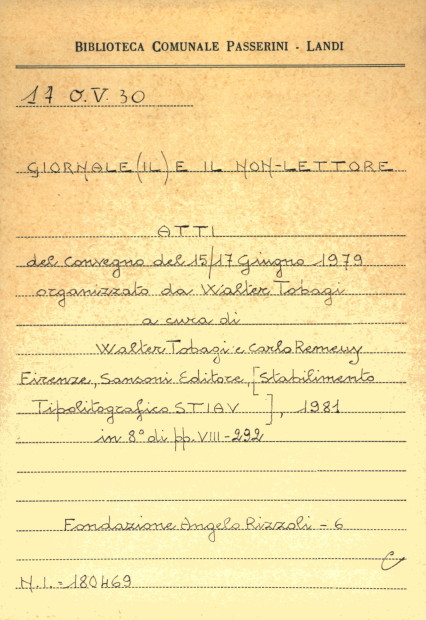 BIBLIOTECA COMUNALE PASSERINI - LANDI
17 O.V. 30
GIORNALE (IL) E IL NON-LETTORE
ATTI
del convegno del 15/17 Giugno 1979
organizzato da Walter Tobagi
a cura di
Walter Tobagi e Carlo Remeny
Firenze, Sansoni Editore, [Stabilimento
Tipolitografico STIAV ], 1981
in 8° di pp. VIII-292
Fondazione Angelo Rizzoli - 6
N.I. = 180469